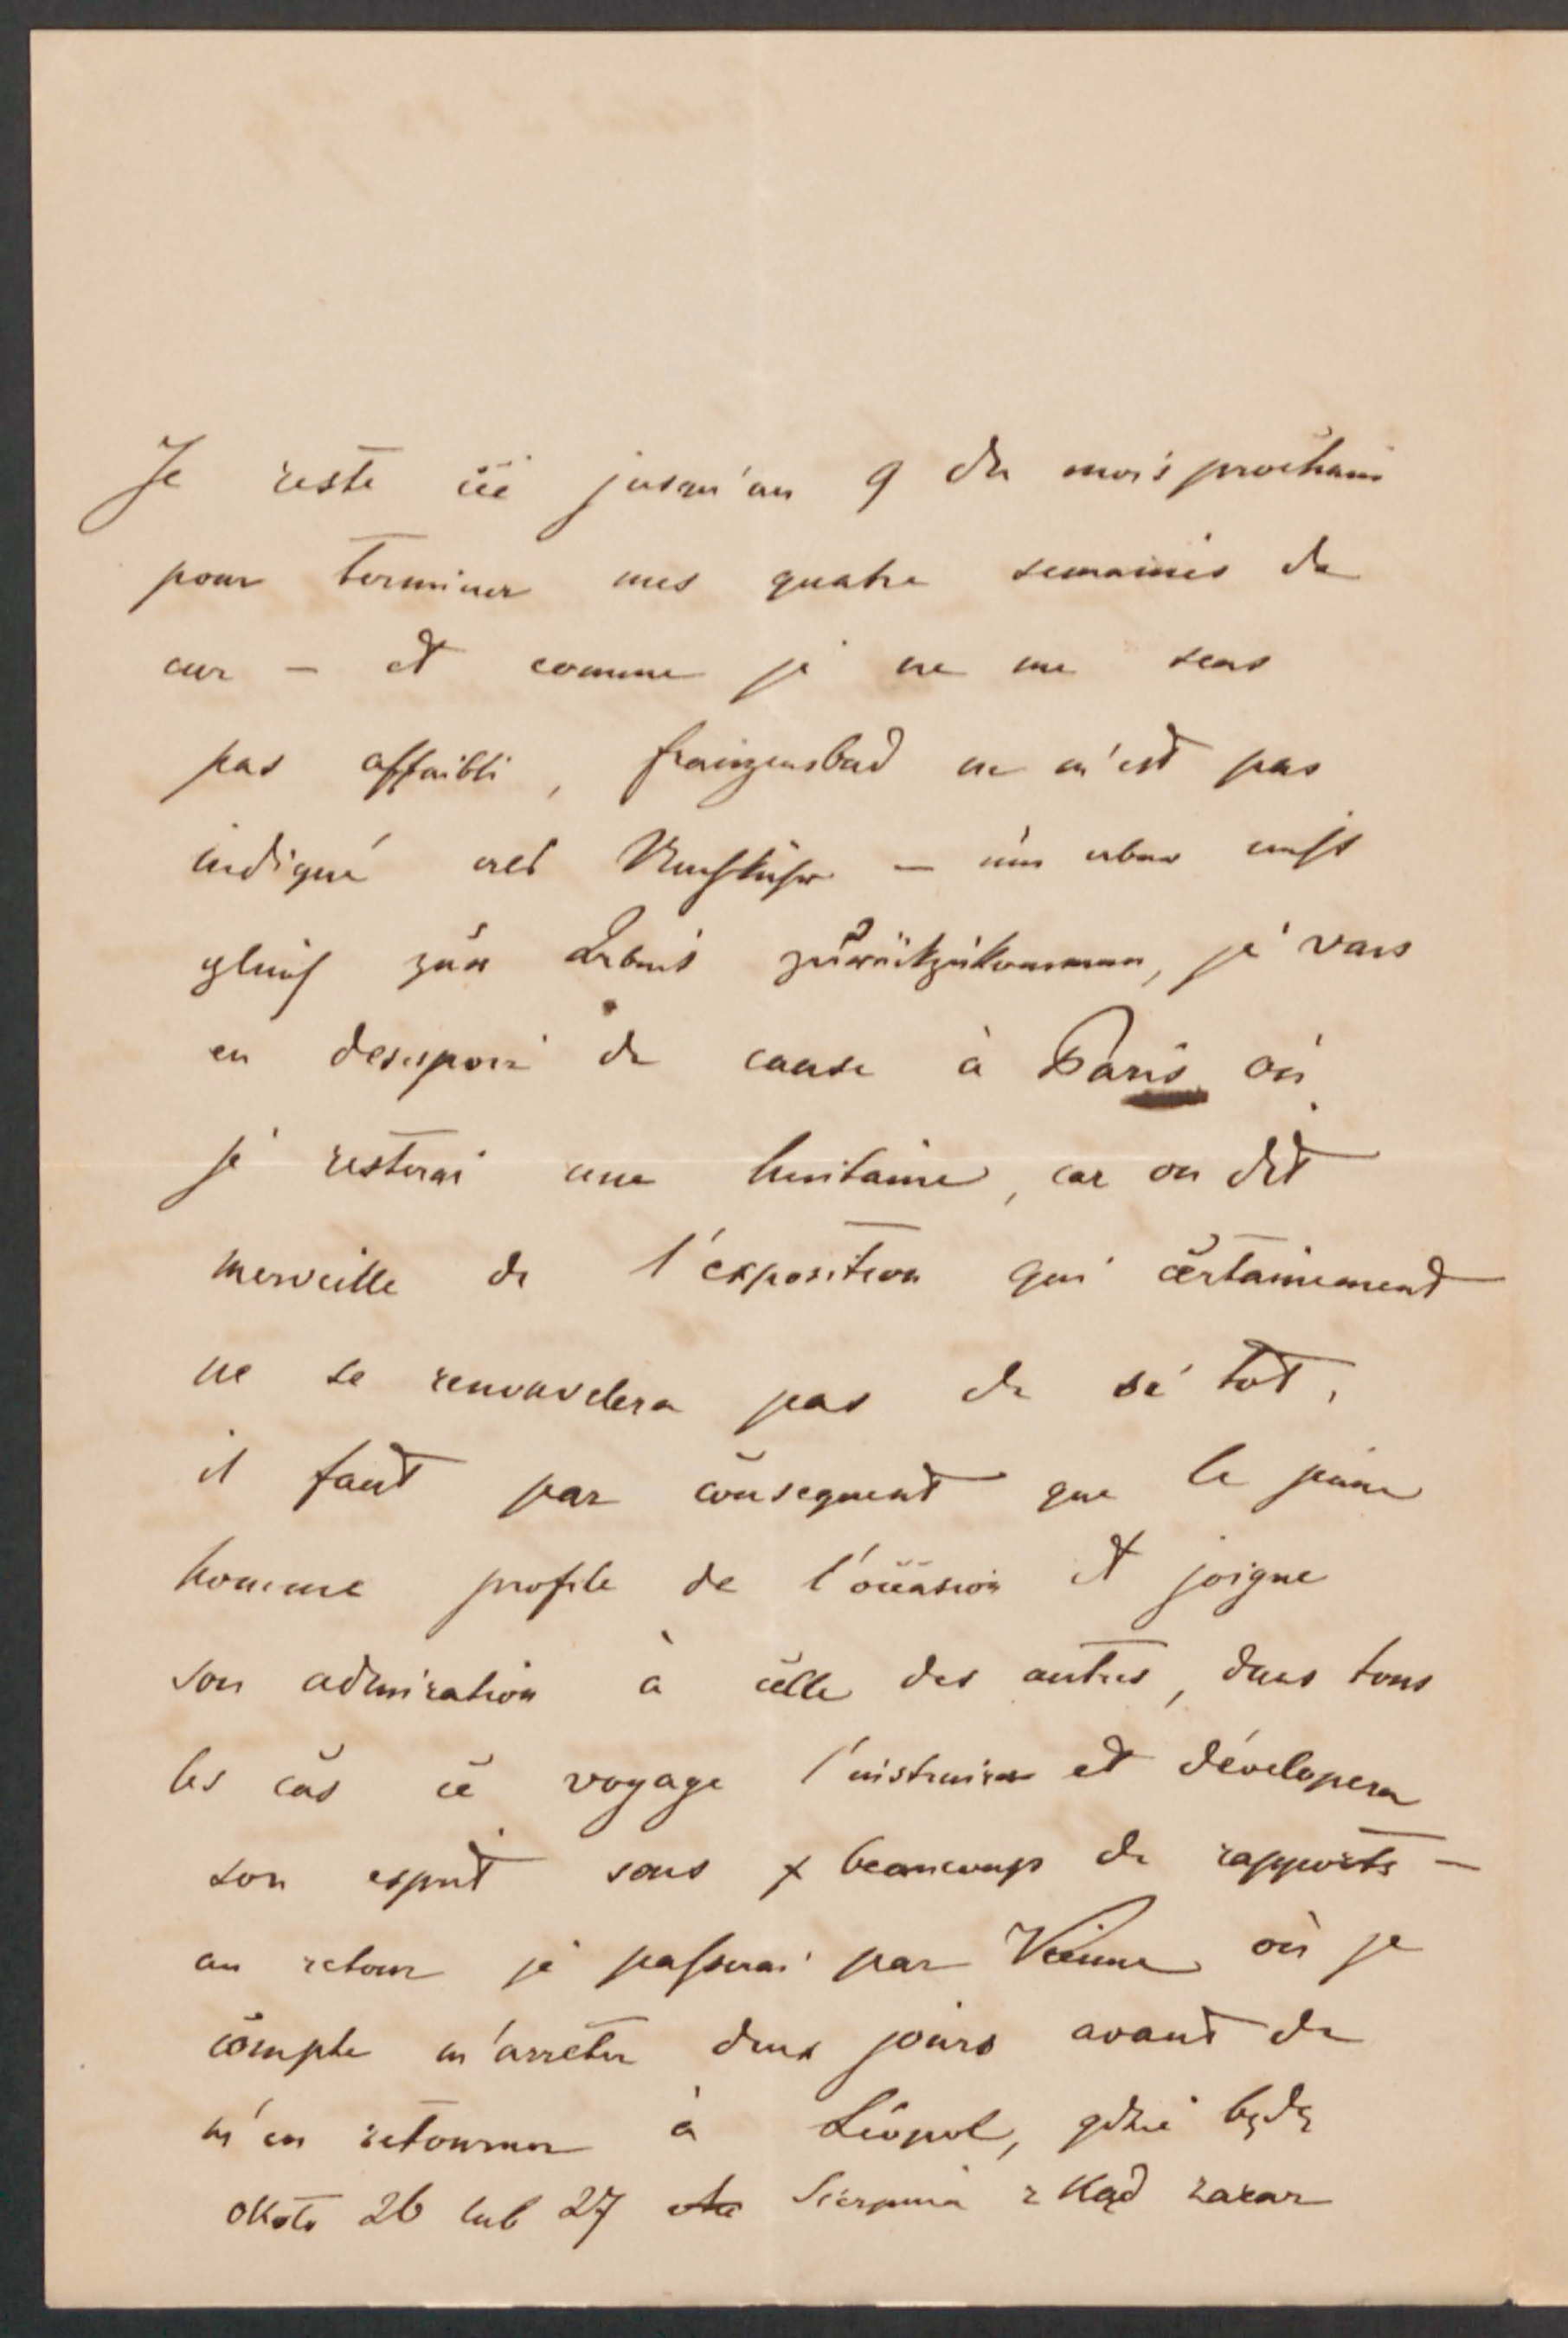 Je reste ici jusqu'au 9 du mois prochain
pour terminer mes quatre semaines de
cur — et comme je ne me sens
pas affaibli, franzensbad ne m'est pas
indiqué als Nachkuhr — um aber nicht
gleich zur Arbeit zurückzukommen, je vais
en desespoir de cause à Paris où
je resterai une huitaine, car on dit
merveille de l'exposition qui certainement
ne se renouvelera pas de si tôt,
il faut par consequent que le jeune
homme profite de l'occasion et joigne
son admiration à celle des autres, dans tous
les cas ce voyage l'instruira et dévelopera
son esprit sous beaucoup de rapports —
au retour je passerai par Vienne où je
compte m'arrêter deux jours avant de
m'en retourner à Léopol, gdzie będę
około 26 lub 27 Sierpnia zkąd zaraz